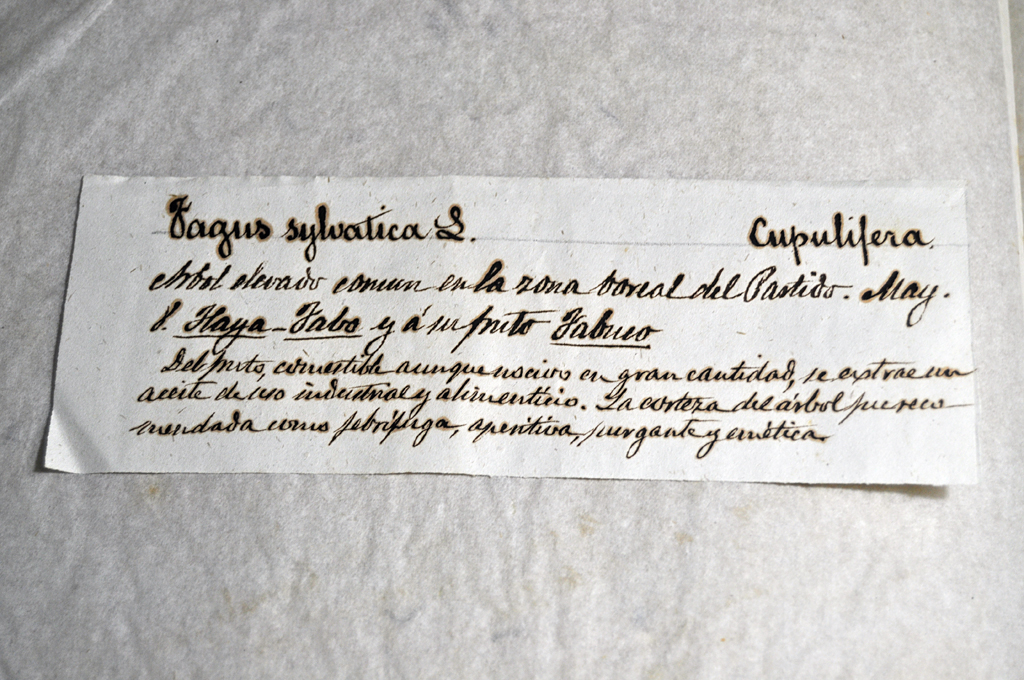 Fagus sylvatica L. Cupulifera.
Arbol elevado comun en la zona boreal del Partido. May.
8. Haya - Fabo y á su fruto Fabuco
Del fruto, comestible aunque nocivo en gran cantidad, se extrae un
aceite de uso industrial y alimenticio. La corteza del árbol fue reco
mendada como febrífuga, aperitiva, purgante y emética.